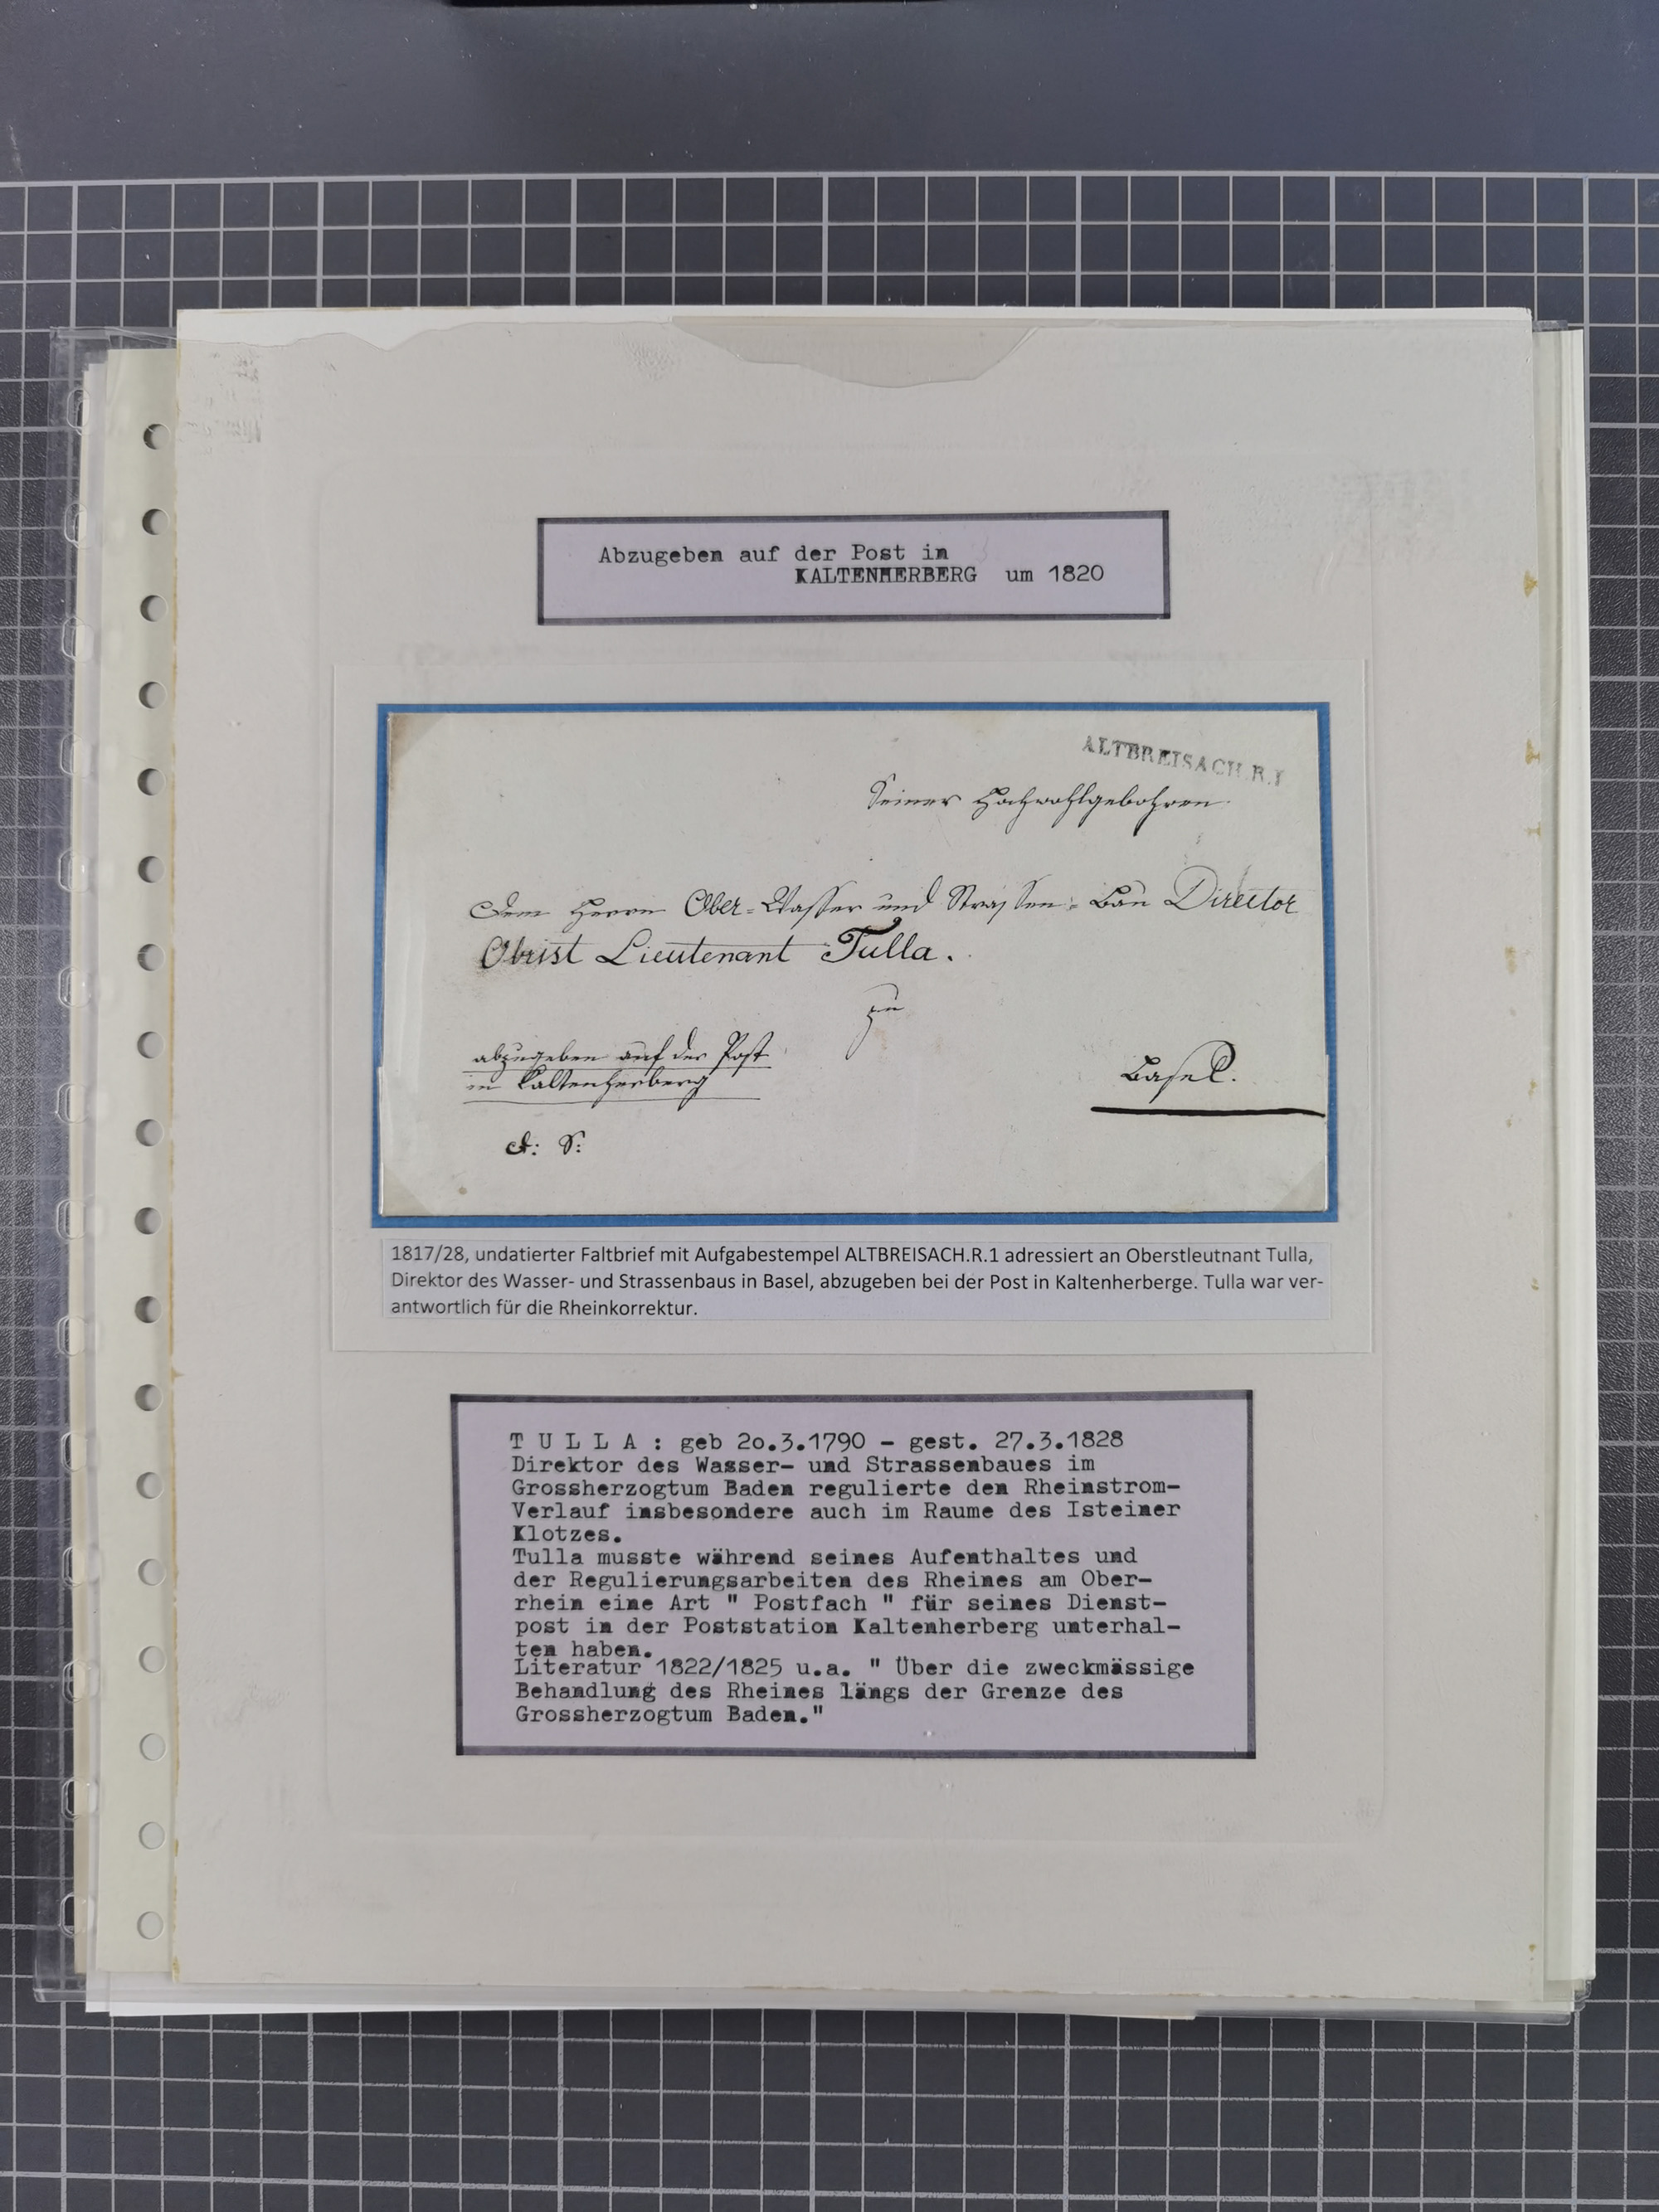 Abzugeben auf der Post in
KALTENHERBERG um 1820
ALTBREISACH.R.1
Seiner Hochwohlgebohren
Dem Herrn Ober-Wasser und Strassen-Bau Director
Obrist Lieutenant Tulla.
zu
abzugeben auf der Post
in Kaltenherberg
Basel.
d: S:
1817/28, undatierter Faltbrief mit Aufgabestempel ALTBREISACH.R.1 adressiert an Oberstleutnant Tulla,
Direktor des Wasser- und Strassenbaus in Basel, abzugeben bei der Post in Kaltenherberge. Tulla war ver-
antwortlich für die Rheinkorrektur.
T U L L A : geb 2o.3.1790 - gest. 27.3.1828
Direktor des Wasser- und Strassenbaues im
Grossherzogtum Baden regulierte den Rheinstrom-
Verlauf insbesondere auch im Raume des Isteiner
Klotzes.
Tulla musste während seines Aufenthaltes und
der Regulierungsarbeiten des Rheines am Ober-
rhein eine Art " Postfach " für seines Dienst-
post in der Poststation Kaltenherberg unterhal-
ten haben.
Literatur 1822/1825 u.a. " Über die zweckmässige
Behandlung des Rheines längs der Grenze des
Grossherzogtum Baden."